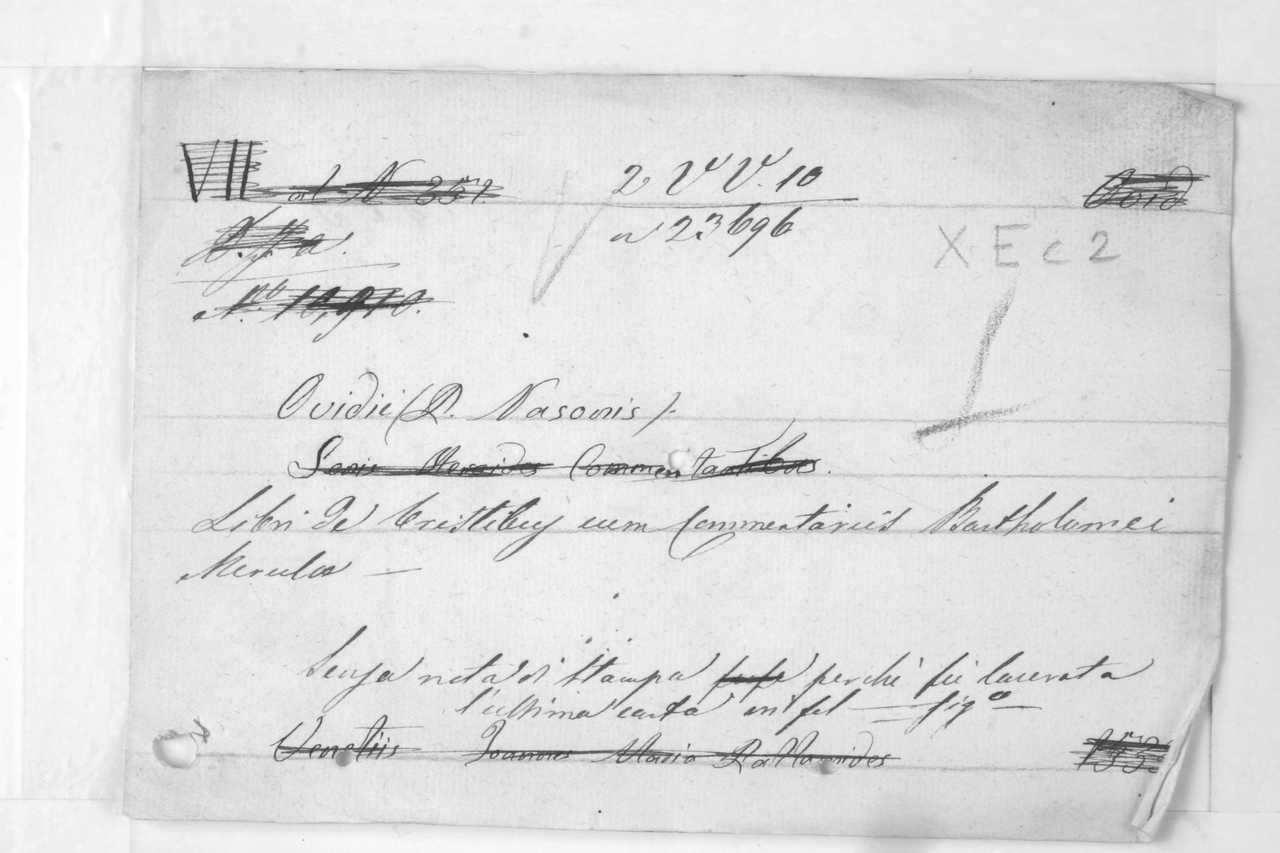 VII al N 357. 2 V V. 10
N.º 10,910. a 23696
X E c 2
Ovidii (P. Nasonis).
Heroides Commentaribus.
Libri de Tristibus cum Commentariis Bartholomei
Merulæ —
Senza nota di Stampa perchè fu lacerata
l'ultima carta in fol — fig.º —
Venetiis Joannes Maria